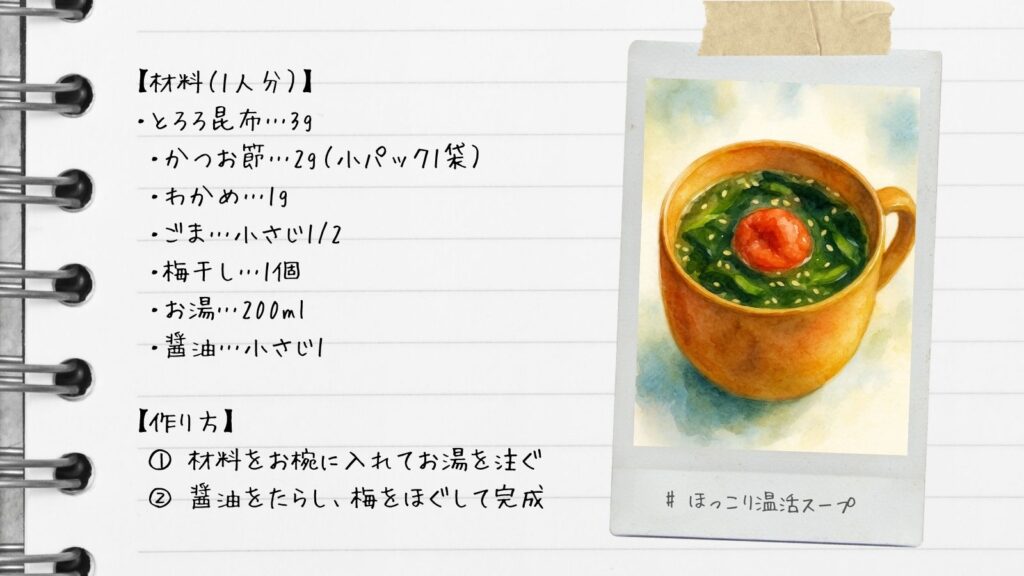 【材料(1人分)】
・とろろ昆布…3g
・かつお節…2g(小パック1袋)
・わかめ…1g
・ごま…小さじ1/2
・梅干し…1個
・お湯…200ml
・醤油…小さじ1
【作り方】
① 材料をお椀に入れてお湯を注ぐ
② 醤油をたらし、梅をほぐして完成
# ほっこり温活スープ